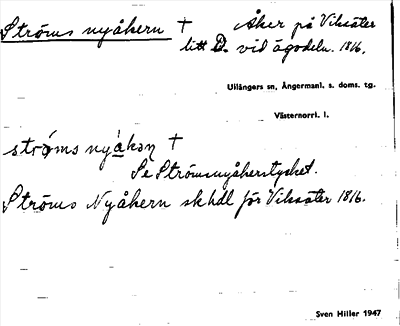 Ströms nyåkern † Åker på Vilsäter
litt D. vid ägodeln. 1816.
Ullångers sn, Ångermanl. s. doms. tg.
Västernorrl. l.
strö́ms nyå̀kəɳ †
Se Strömsnyåkerstycket.
Ströms Nyåkern skhdl för Vilsäter 1816.
Sven Hiller 1947